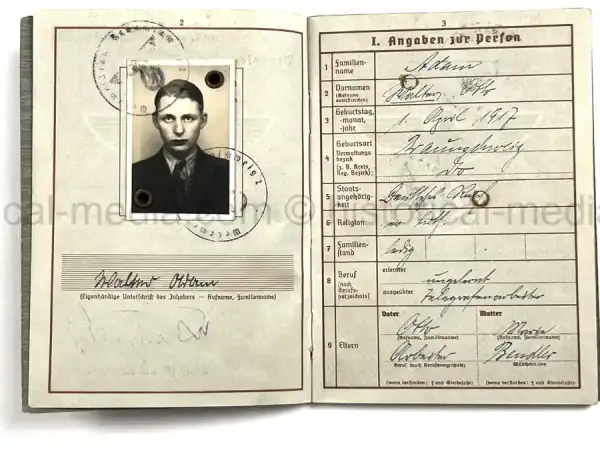 2
Walter Adam
(Eigenhändige Unterschrift des Inhabers — Rufname, Familienname)
3
I. Angaben zur Person
1 Familien-
name
Adam
2 Vornamen
(Rufname
unterstreichen)
Walter Otto
3 Geburtstag,
-monat,
-jahre
1. April 1917
4 Geburtsort
Verwaltungs-
bezirk
(z. B. Kreis,
Reg. Bezirk)
Braunschweig
do
5 Staats-
angehörig-
keit
Deutsches
6 Religion
ev. luth.
7 Familien-
stand
ledig
8 Beruf
(nach
Berufs-
verzeichnis)
erlernter
ungelernt
ausgeübter
Telegrafenarbeiter
9 Eltern
Vater
Otto
(Rufname, Familienname)
Arbeiter
Beruf (nach Berufsverzeichnis)
(wenn verstorben: † und Sterbejahr)
Mutter
(Rufname, Familienname)
Bendler
Mädchenname
(wenn verstorben: † und Sterbejahr)
cal-media.com © historical-media